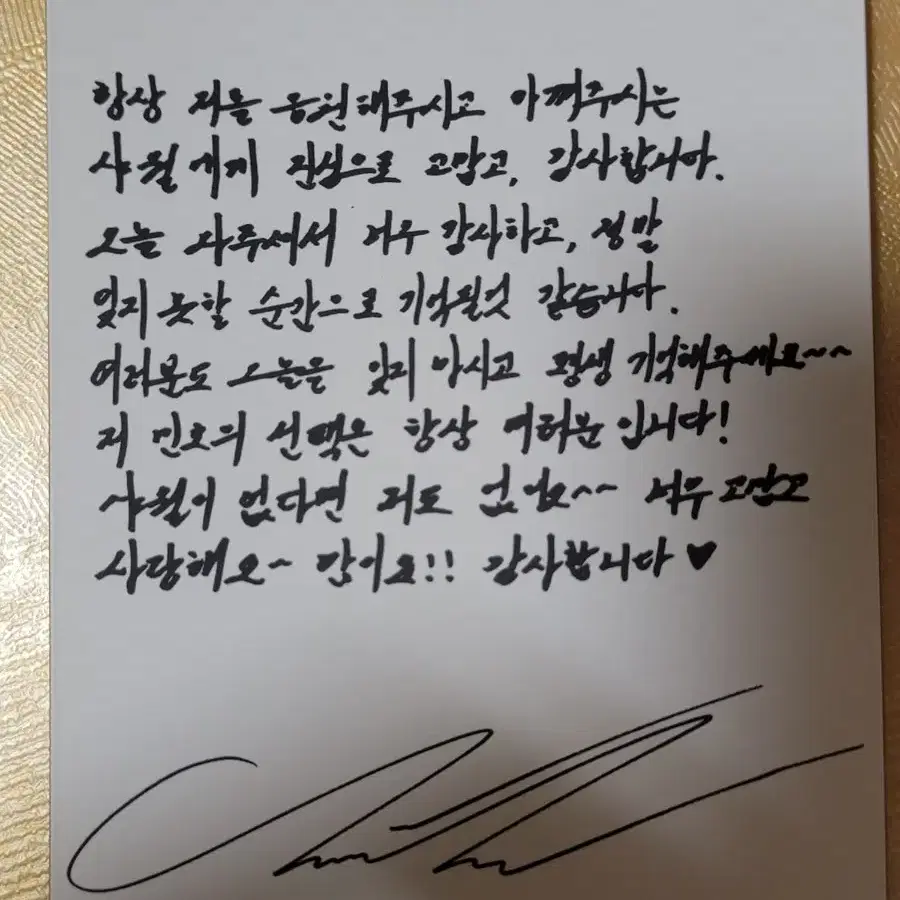 항상 저를 응원해주시고 아껴주시는
샤월에게 진심으로 고맙고, 감사합니다.
오늘 와주셔서 너무 감사하고, 정말
잊지 못할 순간으로 기억될것 같습니다.
여러분도 오늘을 잊지 마시고 평생 기억해주세요~~
저 민호의 선택은 항상 여러분입니다!
샤월이 없다면 저도 없어요~~ 너무 고맙고
사랑해요~ 많이요!! 감사합니다♥